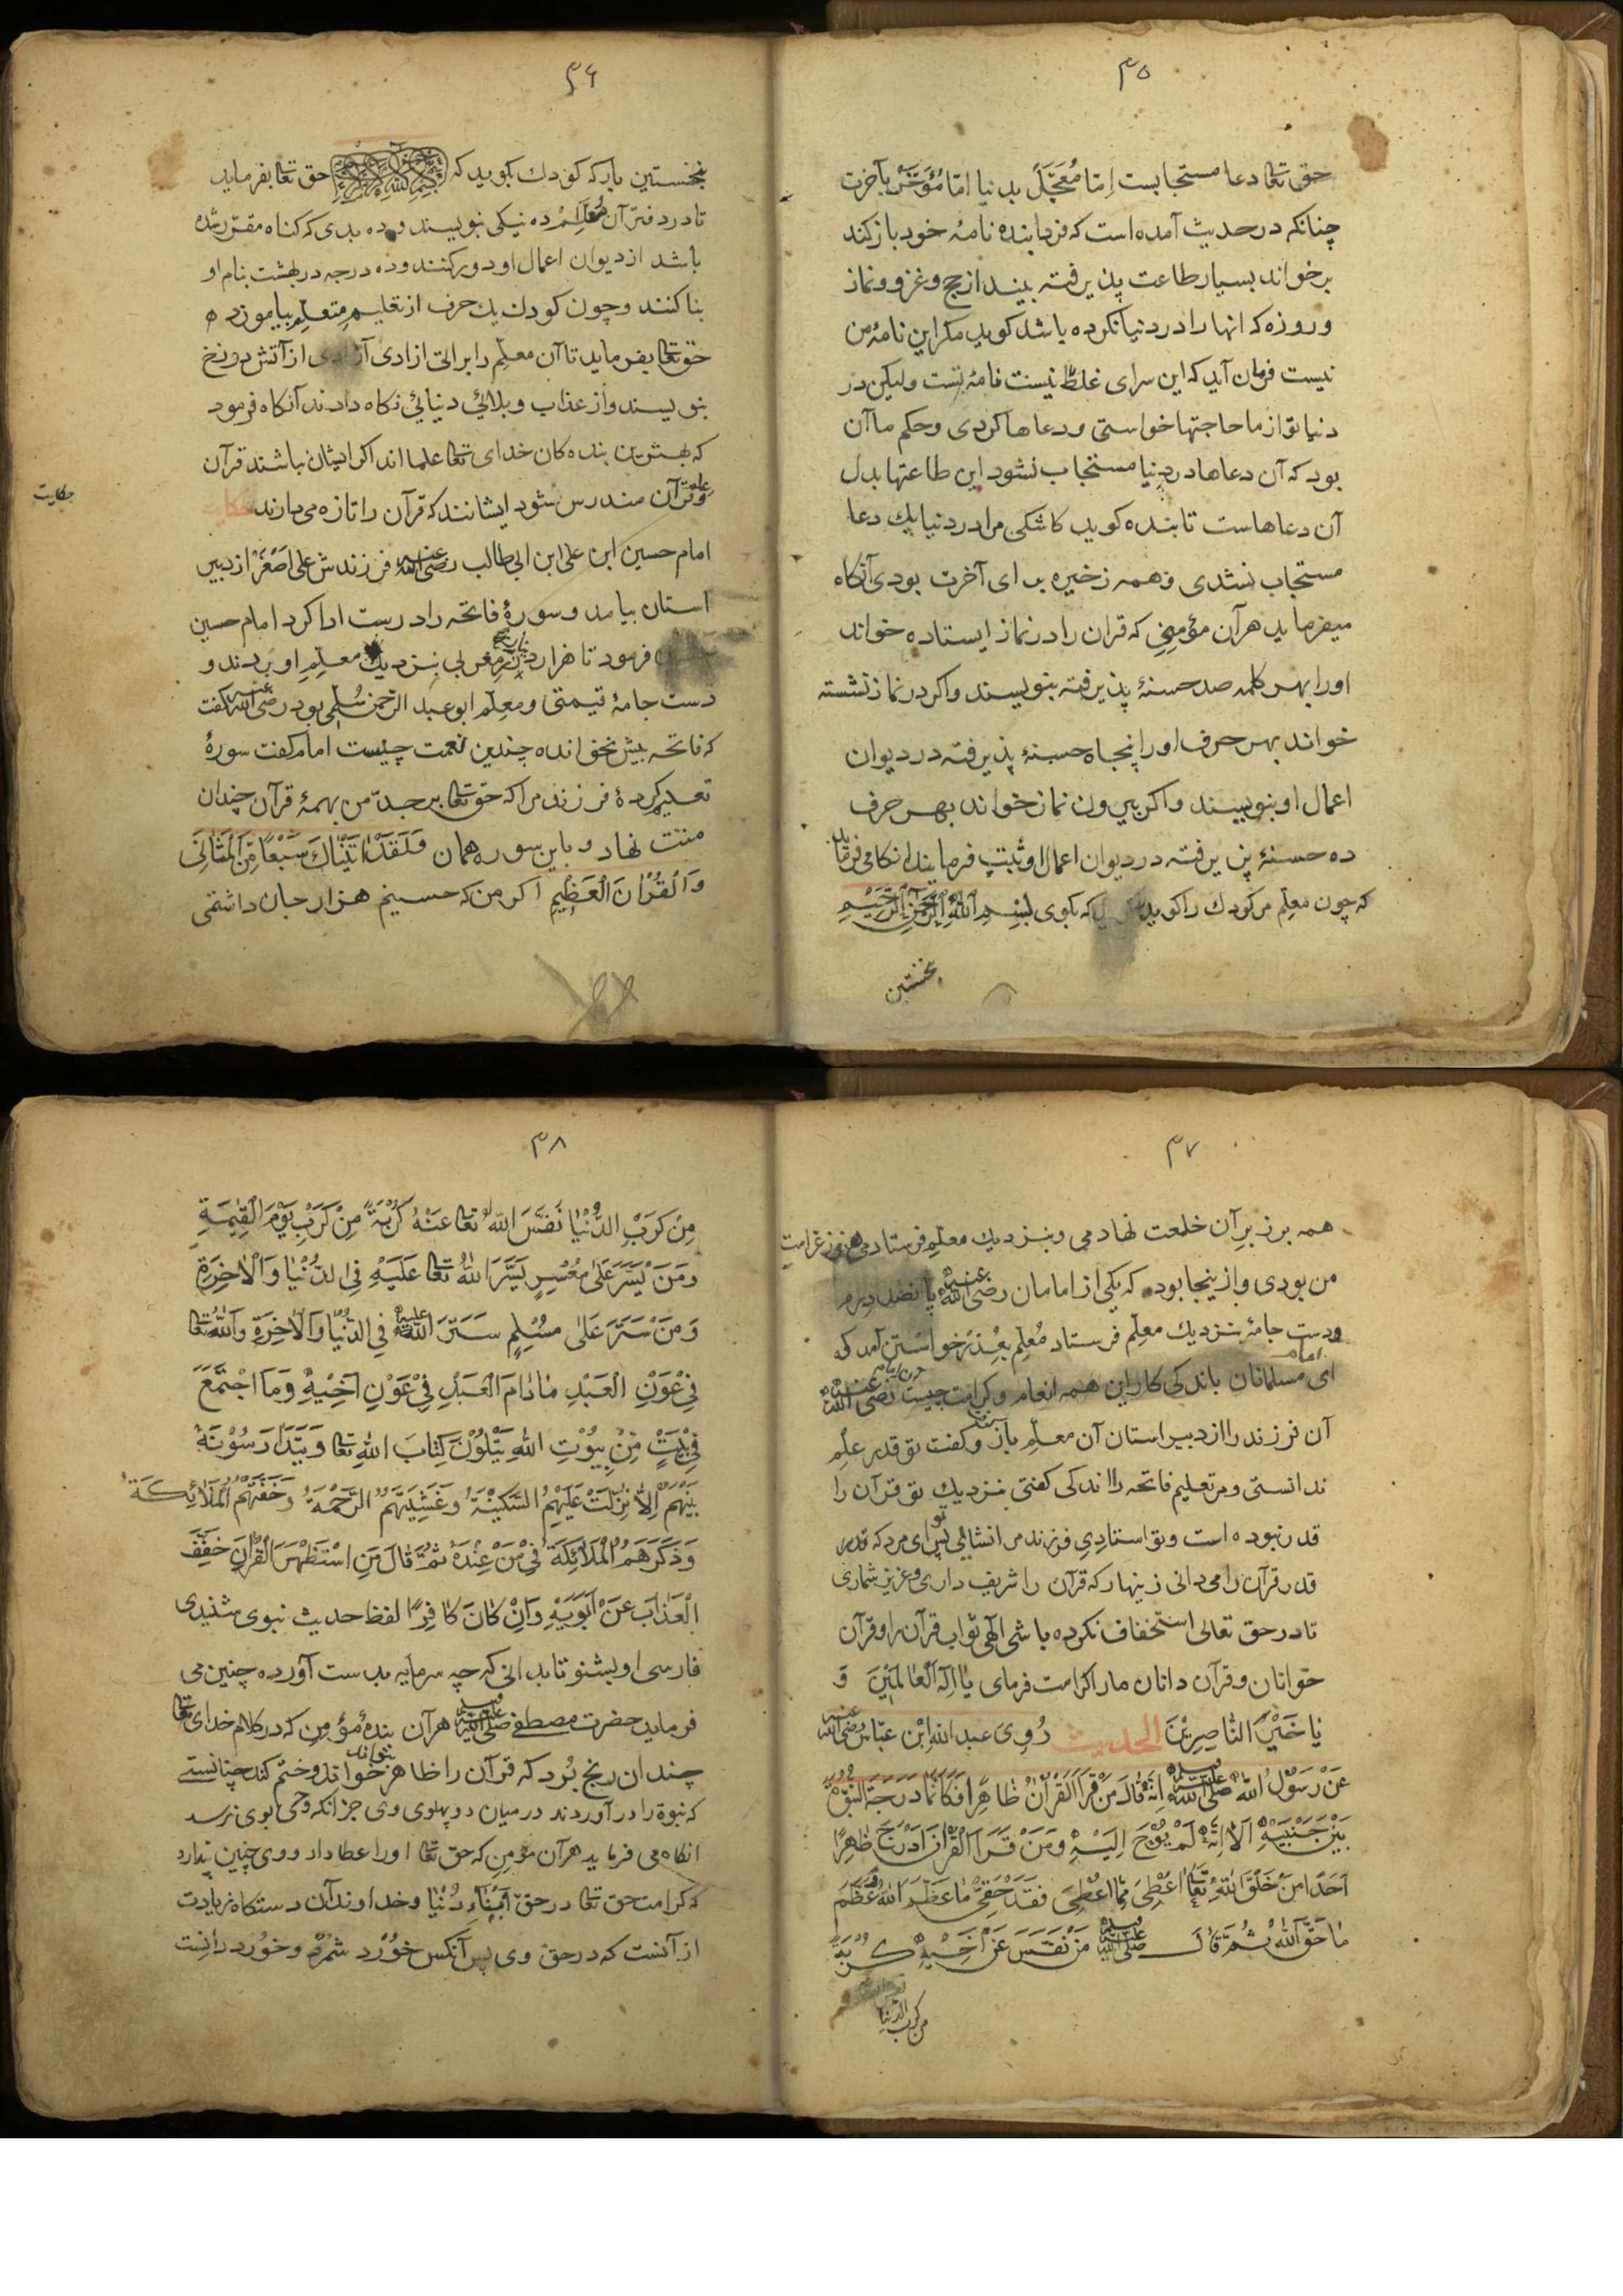 ۳۵
حق تعا دعا مستجابست اِمّا مُعَجَّلْ بدنیا امّا مُؤخَّرْ بآخرت
چنانکه در حدیث آمده است که فردا بنده نامهٔ خود باز کند
برخواند بسیار طاعت پذیرفته بیند از حج و غزو و نماز
و روزه که انها را در دنیا نکرده باشد کوید مکر این نامهٔ من
نیست فرمان آید که این سرای غلط نیست نامهٔ تست ولیکن در
دنیا تو از ما حاجتها خواستی و دعاها کردی و حکم ما آن
بود که آن دعاها در دنیا مستجاب نشود این طاعتها بدل
آن دعاهاست تا بنده کوید کاشکی مرا در دنیا یك دعا
مستجاب نشدی و همه زخیره برای آخرت بودی آنکاه
میفرماید هر آن مؤمنی که قران را در نماز ایستاده خواند
اورا بهر کلمه صد حسنهٔ پذیرفته بنویسند و اکر در نماز نشسته
خواند بهر حرف اورا پنجاه حسنهٔ پذیرفته در دیوان
اعمال او بنویسند و اکر بیرون نماز خواند بهر حرف
ده حسنهٔ پذیرفته در دیوان اعمال او ثبت فرمایند انکا می فرماید
که چون معلّم مر کودك را کوید که بکوی بِسْمِ اللّٰهِ الرَّحْمٰنِ الرَّحِیْمِ
نخستین
۳۶
نخستین بار که کودك بکوید که بِسْمِ اللّٰهِ الرَّحْمٰنِ الرَّحِیْمِ حق تعا بفرماید
تا در دفتر آن مُعَلِّمْ ده نیکی بنویسند و ده بدی که کناه مقرّر شده
باشد از دیوان اعمال او دور کنند و ده درجه در بهشت بنام او
بنا کنند و چون کودك یك حرف از تعلیمِ متعلّم بیاموزد
حق تعا بفرماید تا آن معلّم را براتی ازادی از آتش دوزخ
بنویسند و از عذاب و بلائی دنیائی نکاه دادند آنکاه فرمود
که بهترین بنده کان خدای تعا علما اند اکر ایشان نباشند قرآن
و علم قرآن مندرس شود ایشانند که قرآن را تازه می دارند حکایت
حکایت
امام حسین ابن علی ابن ابی طالب رضی اللّٰه عنه فرزندش علی اصغر از دبیر
استان بیامد و سورهٔ فاتحه را درست ادا کرد امام حسین
فرمود تا هزار دینار زر مغربی بنزدیك معلّمِ او بردند و
دست جامهٔ قیمتی و معلّم ابو عبد الرّحمن سُلمی بود رضی اللّٰه عنه کفت
که فاتحه بیش نخوانده چندین نعمت چیست امام کفت سورهٔ
تعلیم کردهٔ فرزند مرا که حق تعا بر جدّ من بهمهٔ قرآن چندان
منت نهاد و باین سوره همان وَلَقَدْ اٰتَیْنَاكَ سَبْعًا مِّنَ الْمَثَانِیْ
وَالْقُرْاٰنَ الْعَظِیْمِ اکر من که حسینم هزار جان داشتمی
۳۷
همه بر زبرِ آن خلعت نهادمی و بنزدیك معلّم فرستادمی هنوز غرامت
من بودی و از ینجا بود که یکی از امامان رضی اللّٰه عنه پانصد درم
و دست جامهٔ بنزدیك معلّم فرستاد مُعلّم بعُذرخواستن آمد که
ای امام مسلمانان باندکی کار این همه انعام و کرامت چیست
آن فرزند را از دبیر استان آن معلّم باز و کفت تو قدر علم
ندانستی و مر تعلیم فاتحه را اندکی کفتی بنزدیك تو قرآن را
قدر نبوده است و تو استادِی فرزند مرا نشائی پس ای مرد که
قدر قرآن را می دانی زینهار که قرآن را شریف داری و عزیز شماری
تا در حق تعالی استخفاف نکرده باشی الٰهی ثواب قرآن را و قرآن
خوانان و قرآن دانان ما را کرامت فرمای یٰا اِلٰهَ الْعٰالَمِیْنَ وَ
یٰا خَیْرَ النّٰاصِرِیْنَ الحدیث رُوِیَ عبد اللّٰه اِبْن عبّاس رضی اللّٰه عنه
عَنْ رَسُوْلِ اللّٰهِ صلی اللّٰه علیه وسلم اَنَّهُ قَالَ مَنْ قَرَأَ الْقُرْاٰنَ ظَاهِرًا فَکَاَنَّمَا دَرَجَةَ النُّبُوَّةِ
بَیْنَ جَنْبَیْهِ اَلَا اِنَّهُ لَمْ یُوْحَ اِلَیْهِ وَمَنْ قَرَأَ الْقُرْاٰنَ
اَحَدًا مِنْ خَلْقِ اللّٰهِ تَعَا اُعْطِیَ مِمَّا اُعْطِیَ فَقَدْ حَقَّرَ مَا عَظَّمَ اللّٰهُ وَعَظَّمَ
مَا حَقَّرَ اللّٰهُ ثُمَّ قَالَ صلی اللّٰه علیه وسلم مَنْ نَفَّسَ عَنْ اَخِیْهِ کُرْبَةً
من کرب الدنیا
۳۸
مِنْ کَرَبِ الدُّنْیَا نَفَّسَ اللّٰهُ تعا عَنْهُ کُرْبَةً مِنْ کَرَبِ یَوْمَ الْقِیٰمَةِ
وَمَنْ یَسَّرَ عَلٰی مُعْسِرٍ یَسَّرَ اللّٰهُ تعا عَلَیْهِ فِی الدُّنْیَا وَالْاٰخِرَةِ
وَمَنْ سَتَرَ عَلٰی مُسْلِمٍ سَتَرَ اللّٰهُ علیه فِی الدُّنْیَا وَالْاٰخِرَةِ وَاللّٰهُ تعا
فِیْ عَوْنِ الْعَبْدِ مٰا دٰامَ الْعَبْدِ فِیْ عَوْنِ اَخِیْهِ وَمَا اجْتَمَعَ
فِیْ بَیْتٍ مِنْ بِیُوْتِ اللّٰهِ یَتْلُوْنَ کِتَابَ اللّٰهِ تعا وَیَتَدَارَسُوْنَهُ
بَیْنَهُمْ اِلَّا نَزَلَتْ عَلَیْهِمُ السَّکِیْنَةُ وَغَشِیَتْهُمُ الرَّحْمَةُ وَحَفَّتْهُمُ الْمَلَائِکَةُ
وَذَکَرَهُمُ الْمَلَائِکَةُ فِیْ مَنْ عِنْدَهُ ثُمَّ قَالَ مَنِ اسْتَظْهَرَ الْقُرْاٰنَ خَفَّفَ
الْعَذَابَ عَنْ اَبَوَیْهِ وَاِنْ کَانَ کَافِرًا لفظ حدیث نبوی شنیدی
فارسی او بشنو تا بدانی که چه سرمایه بدست آورده چنین می
فرماید حضرت مصطفی صلی اللّٰه علیه وسلم هر آن بندهٔ مؤمن که در کلام خدای تعا
چندان رنج بُرد که قرآن را ظاهر بتواند خواند و ختم کند چنانستی
که نبوة را در آوردند در میان دو پهلوی وی جز انکه وحی بوی نرسد
انکاه می فرماید هر آن مؤمن که حق تعا اورا عطا داد و وی چنین پندارد
که کرامت حق تعا در حق اَبْنَاءِ دُنْیَا و خداوندان دستکاه زیادت
از آنست که در حق وی پس آنکس خُوْرد شمرد و خُورد دانست